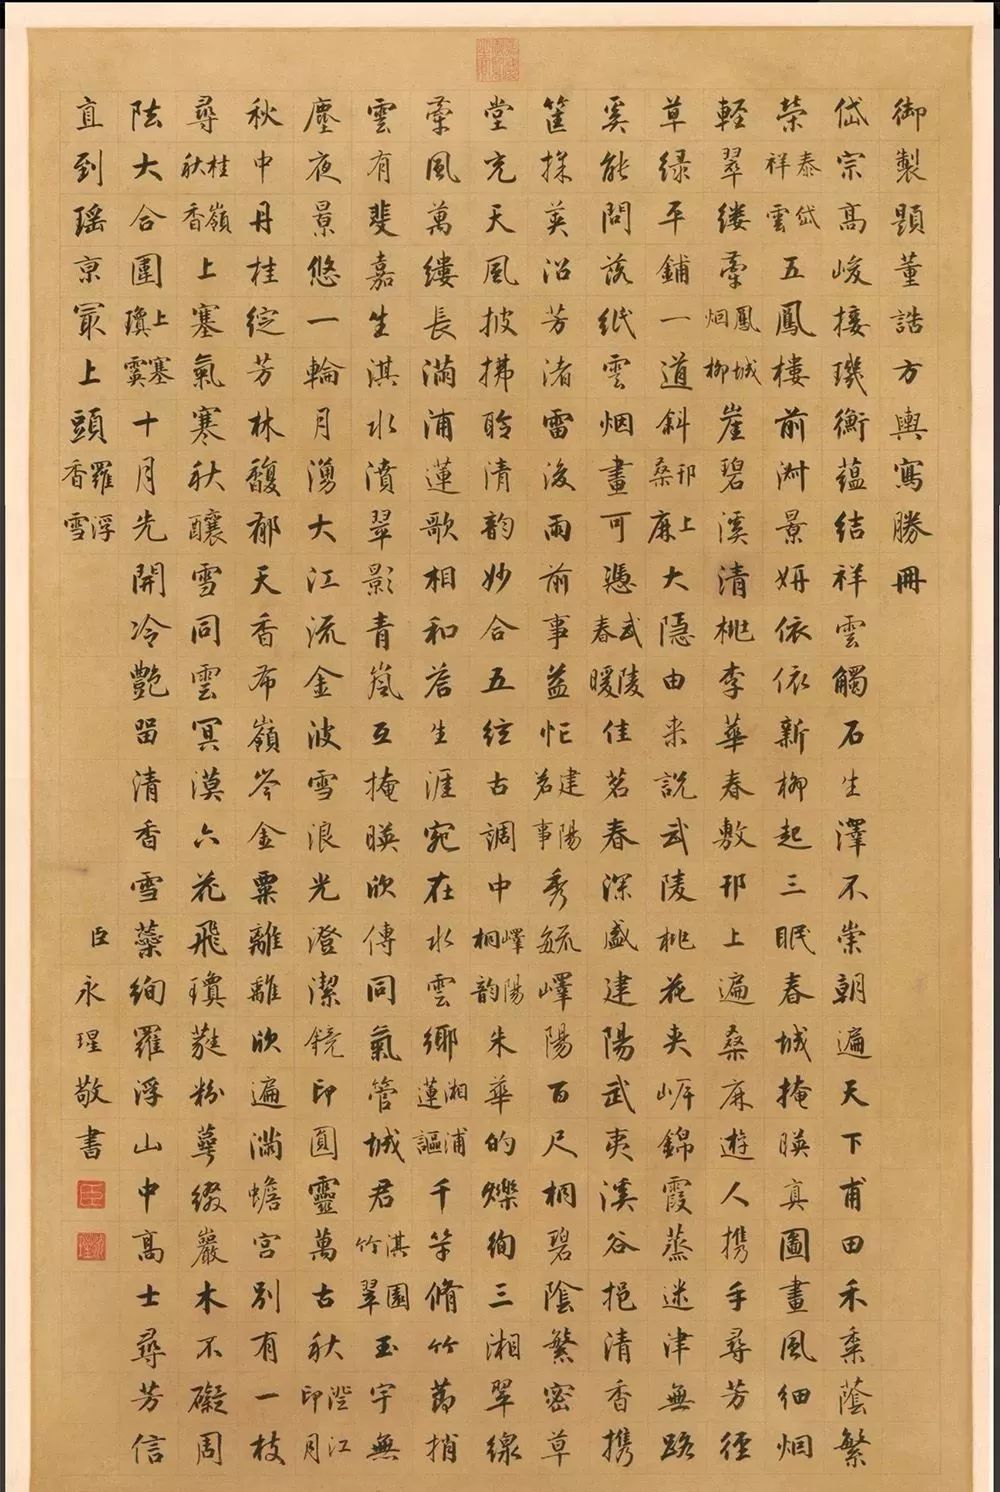 御製題董誥方輿寫勝冊
岱宗高峻接璣衡蘊結祥雲觸石生澤不崇朝遍天下甫田禾黍蔭繁
榮泰岱祥雲五鳳樓前淑景妍依依新柳起三眠春城掩暎真圖畫風細烟
輕翠縷牽鳳城烟柳崖碧溪清桃李華春敷邗上遍桑麻遊人攜手尋芳徑
草綠平鋪一道斜邗上桑麻大隱由来說武陵桃花夾岸錦霞蒸迷津無路
奚能問落紙雲烟畫可憑武陵春暖佳茗春深盛建陽武夷溪谷挹清香攜
筐採英沿芳渚雷後雨前事益忙建陽茗事秀毓嶧陽百尺桐碧陰繁密草
堂充天風披拂聆清韵妙合五絃古調中嶧陽桐韵朱華的爍絢三湘翠線
牽風萬縷長滿浦蓮歌相和荅生涯宛在水雲鄉湘浦蓮謳千竿脩竹蔚捎
雲有斐嘉生淇水濆翠影青嵐互掩暎欣傳同氣管城君淇園竹翠玉宇無
塵夜景悠一輪月湧大江流金波雪浪光澄潔鏡印圓靈萬古秋澄江印月
秋中丹桂綻芳林馥郁天香布嶺岑金粟離離欣遍滿蟾宮別有一枝
尋桂嶺秋香上塞氣寒秋釀雪同雲冥漠六花飛瓊蕤粉萼綴巖木不礙周
阹大合圍上塞瓊霙十月先開冷艷留清香雪蘂絢羅浮山中高士尋芳信
直到瑤京最上頭羅浮香雪臣永瑆敬書